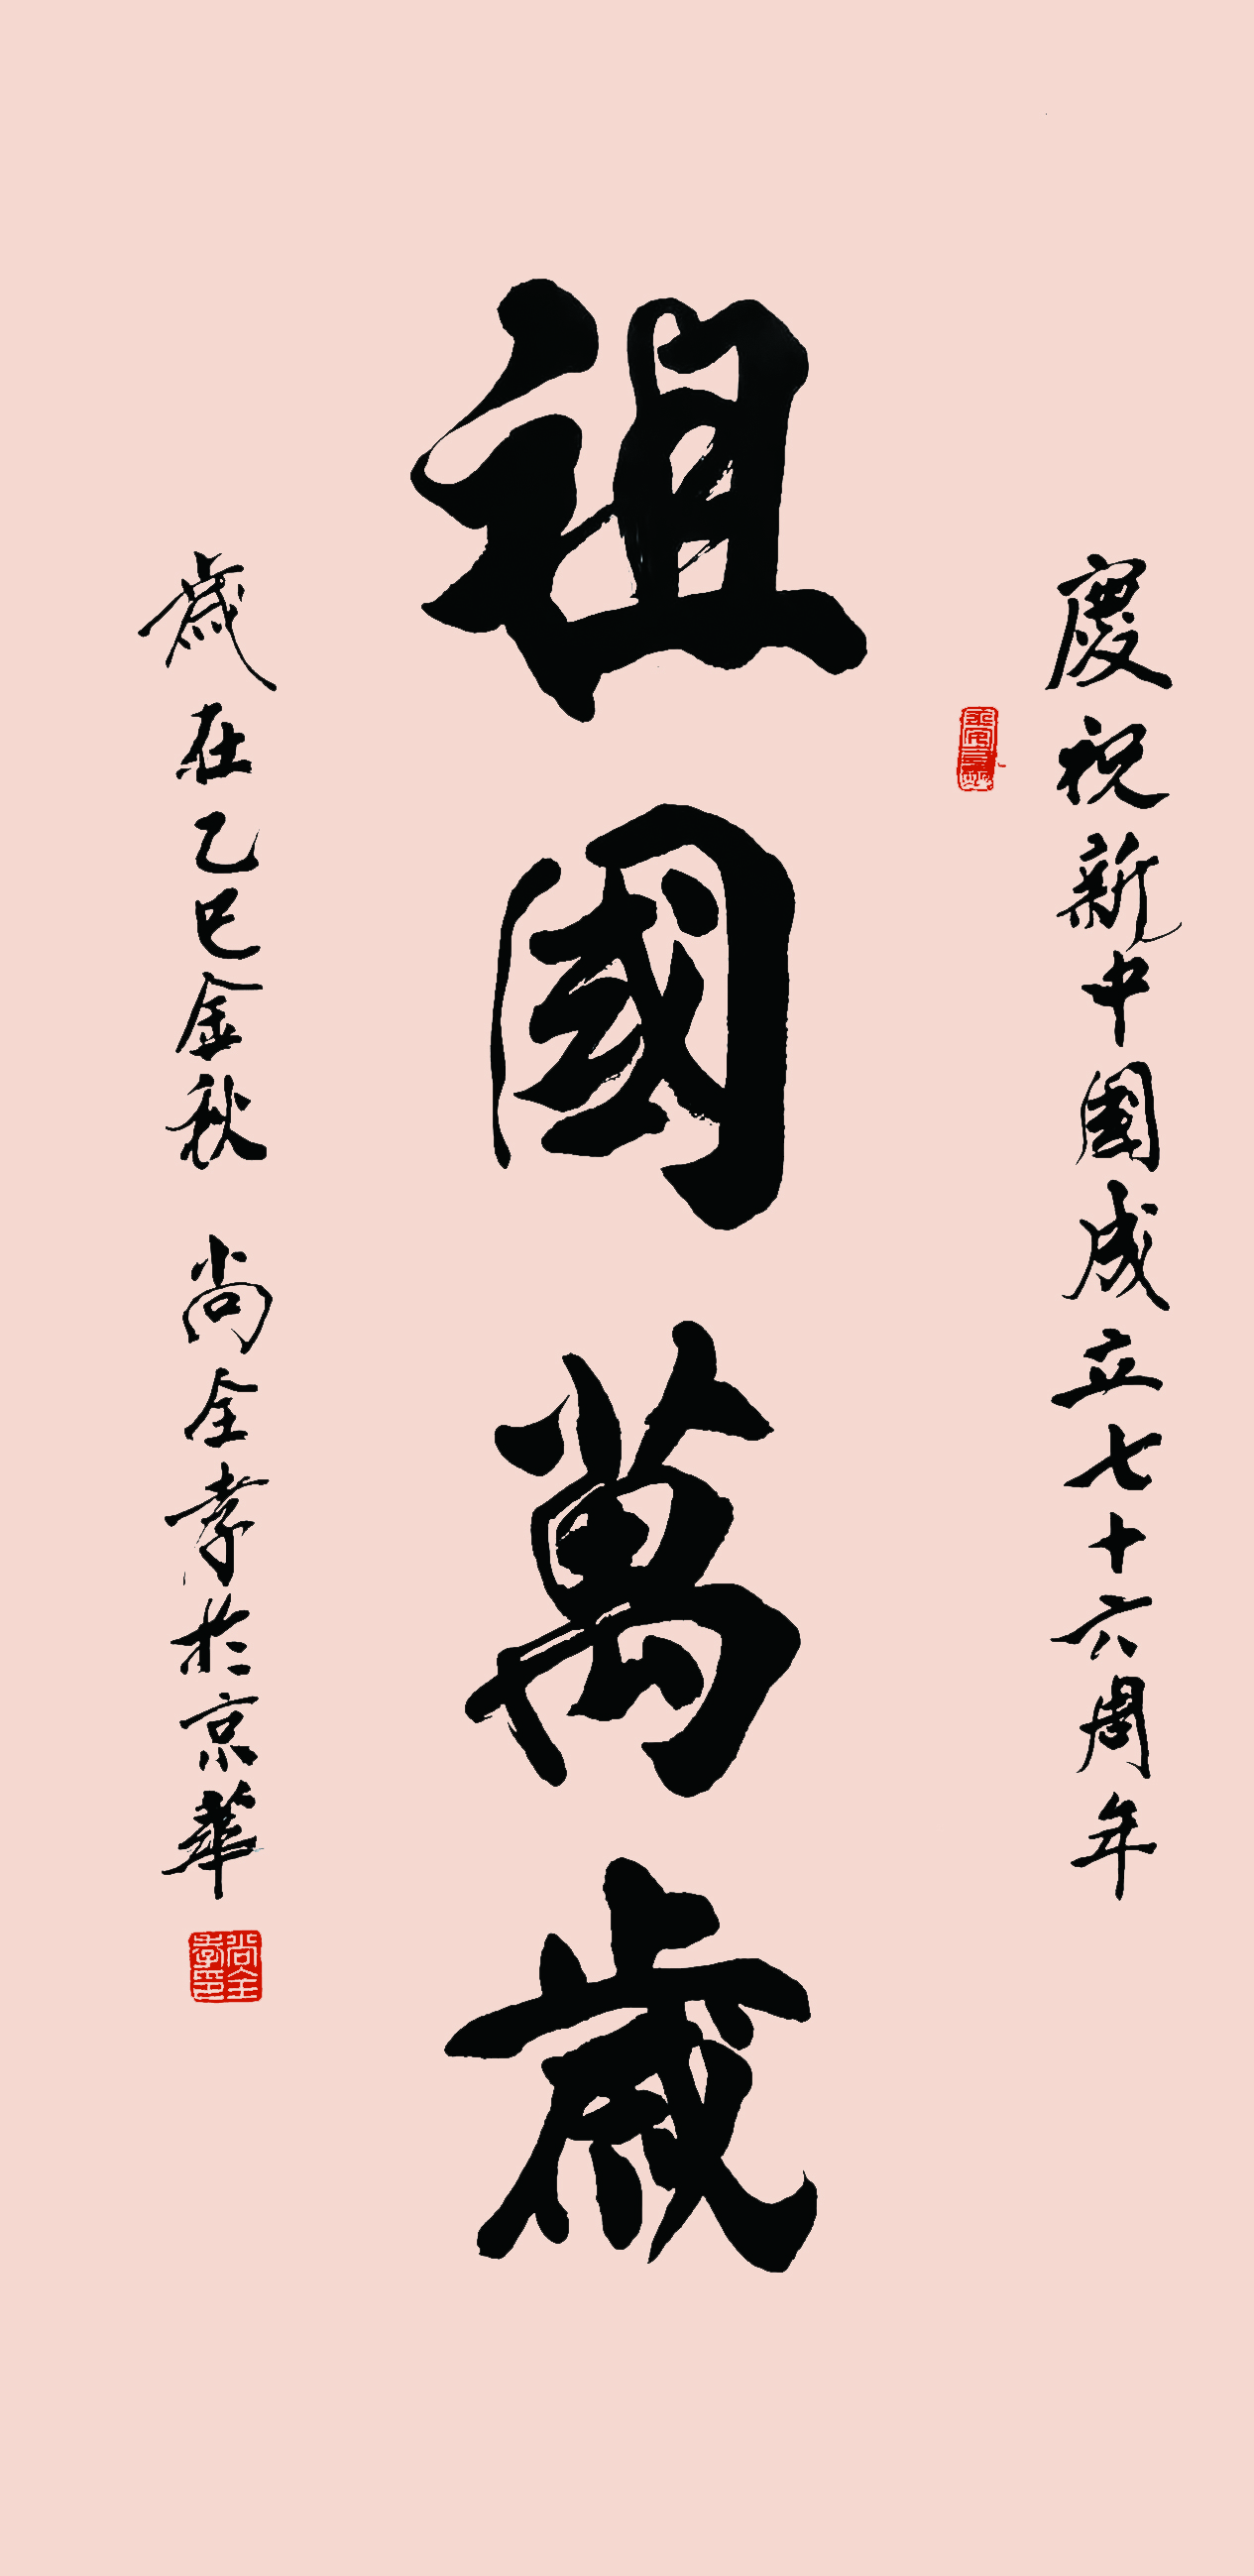 慶祝新中國成立七十六周年
祖國萬歲
歲在乙巳金秋 尚全孝於京華
尚全孝印